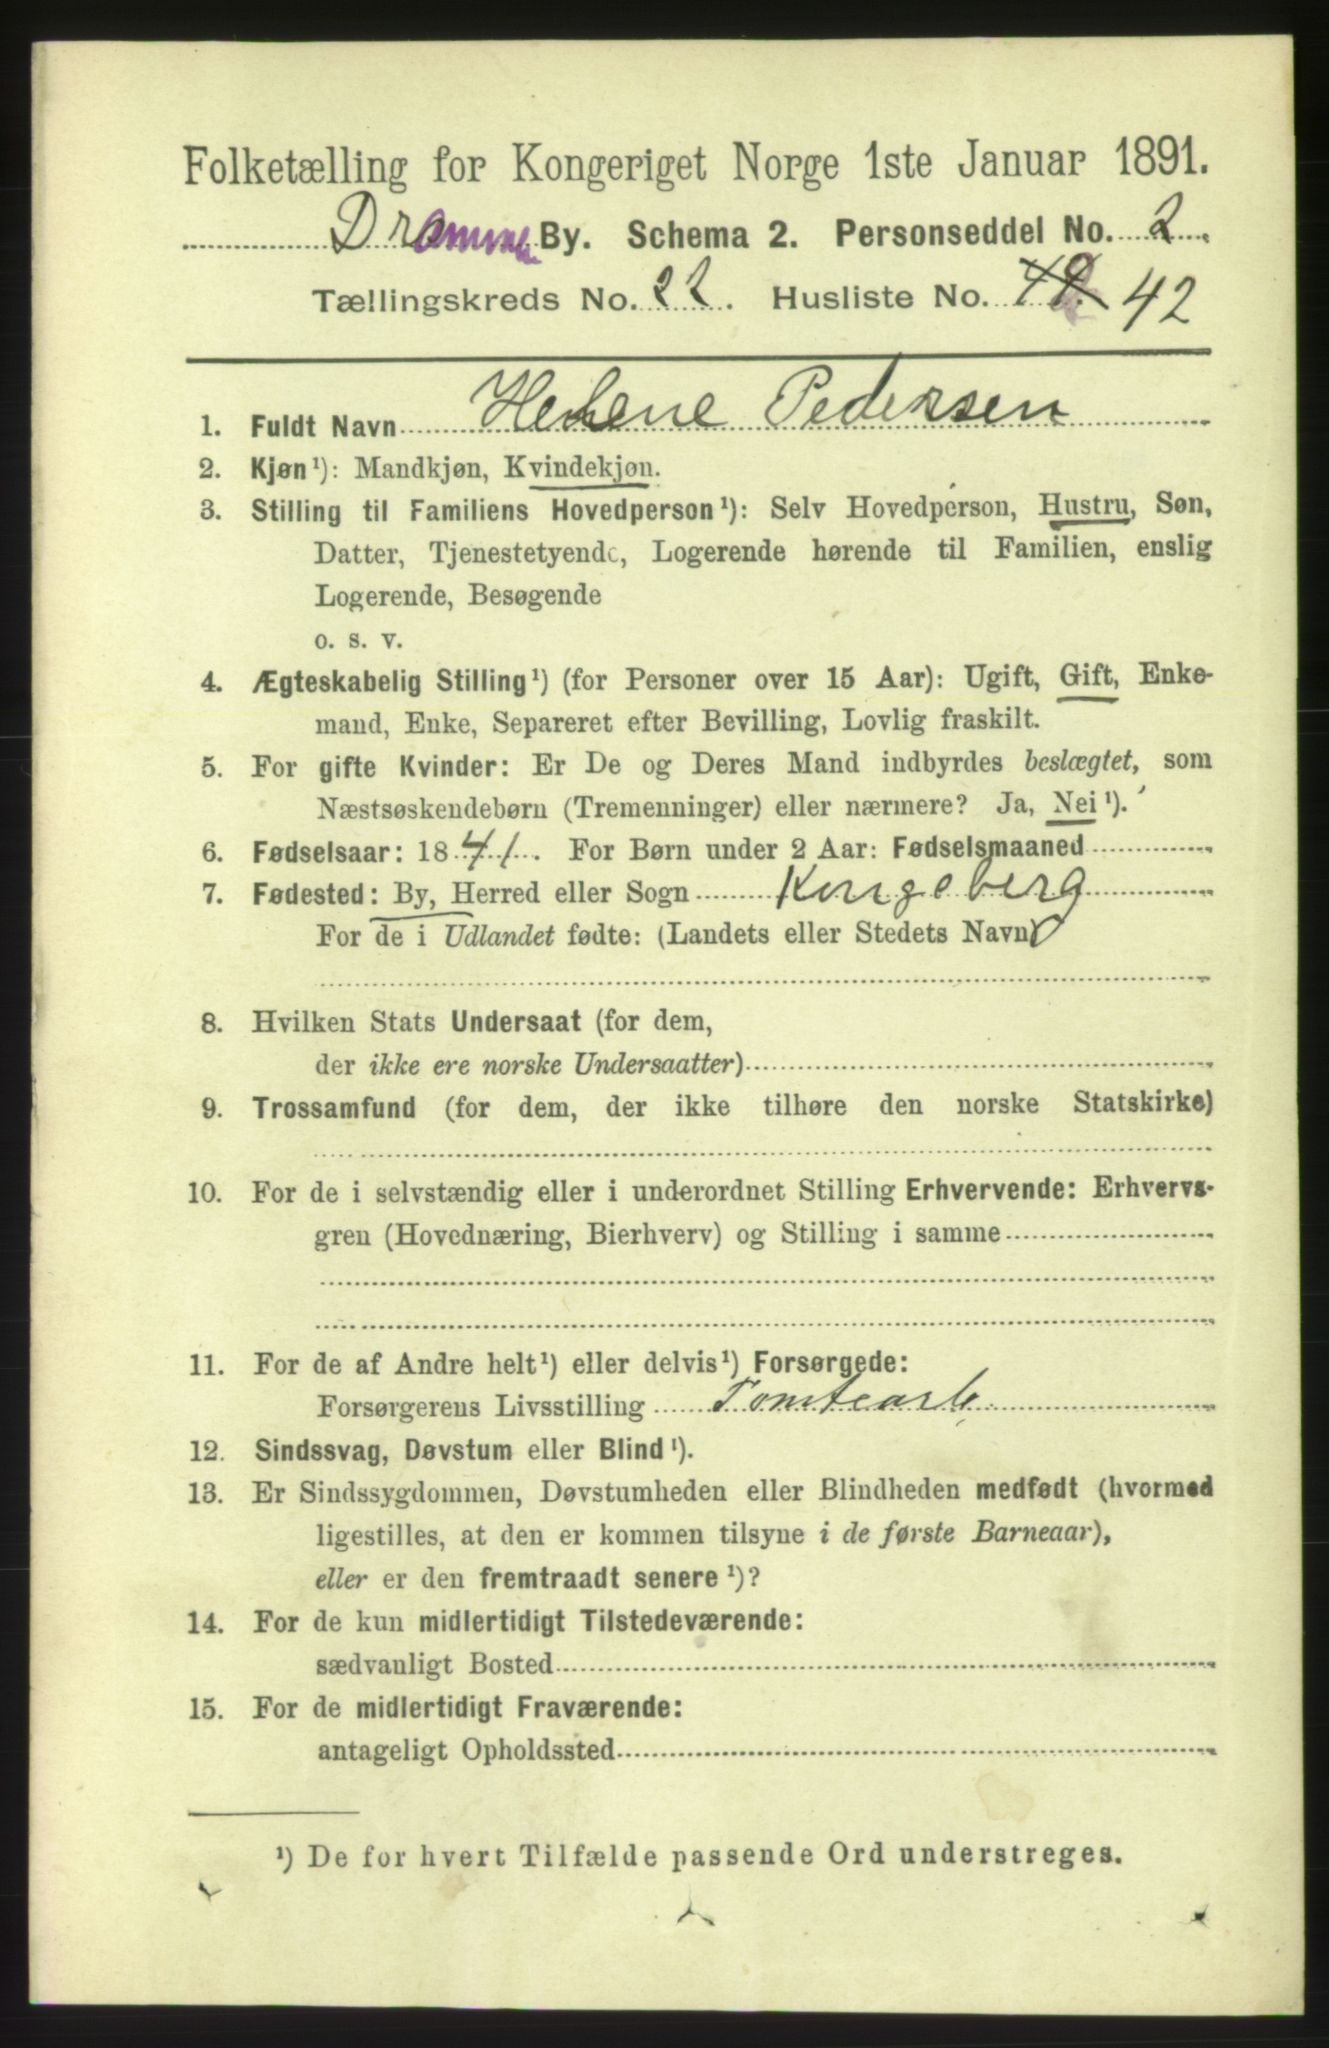 Folketælling for Kongeriget Norge 1ste Januar 1891.
Drammen By. Schema 2. Personseddel No. 2.
Tællingskreds No. 22. Husliste No. 42
1. Fuldt Navn Helene Pedersen
2. Kjøn ¹): Mandkjøn, Kvindekjøn.
3. Stilling til Familiens Hovedperson ¹): Selv Hovedperson, Hustru, Søn,
Datter, Tjenestetyende, Logerende hørende til Familien, enslig
Logerende, Besøgende
o. s. v.
4. Ægteskabelig Stilling ¹) (for Personer over 15 Aar): Ugift, Gift, Enke-
mand, Enke, Separeret efter Bevilling, Lovlig fraskilt.
5. For gifte Kvinder: Er De og Deres Mand indbyrdes beslægtet, som
Næstsøskendebørn (Tremenninger) eller nærmere? Ja, Nei ¹).
6. Fødselsaar: 1841. For Børn under 2 Aar: Fødselsmaaned
7. Fødested: By, Herred eller Sogn Kongsberg
For de i Udlandet fødte: (Landets eller Stedets Navn)
8. Hvilken Stats Undersaat (for dem,
der ikke ere norske Undersaatter)
9. Trossamfund (for dem, der ikke tilhøre den norske Statskirke)
10. For de i selvstændig eller i underordnet Stilling Erhvervende: Erhvervs-
gren (Hovednæring, Bierhverv) og Stilling i samme
11. For de af Andre helt ¹) eller delvis ¹) Forsørgede:
Forsørgerens Livsstilling Tomtearb.
12. Sindssvag, Døvstum eller Blind ¹).
13. Er Sindssygdommen, Døvstumheden eller Blindheden medfødt (hvormed
ligestilles, at den er kommen tilsyne i de første Barneaar),
eller er den fremtraadt senere ¹)?
14. For de kun midlertidigt Tilstedeværende:
sædvanligt Bosted
15. For de midlertidigt Fraværende:
antageligt Opholdssted
¹) De for hvert Tilfælde passende Ord understreges.